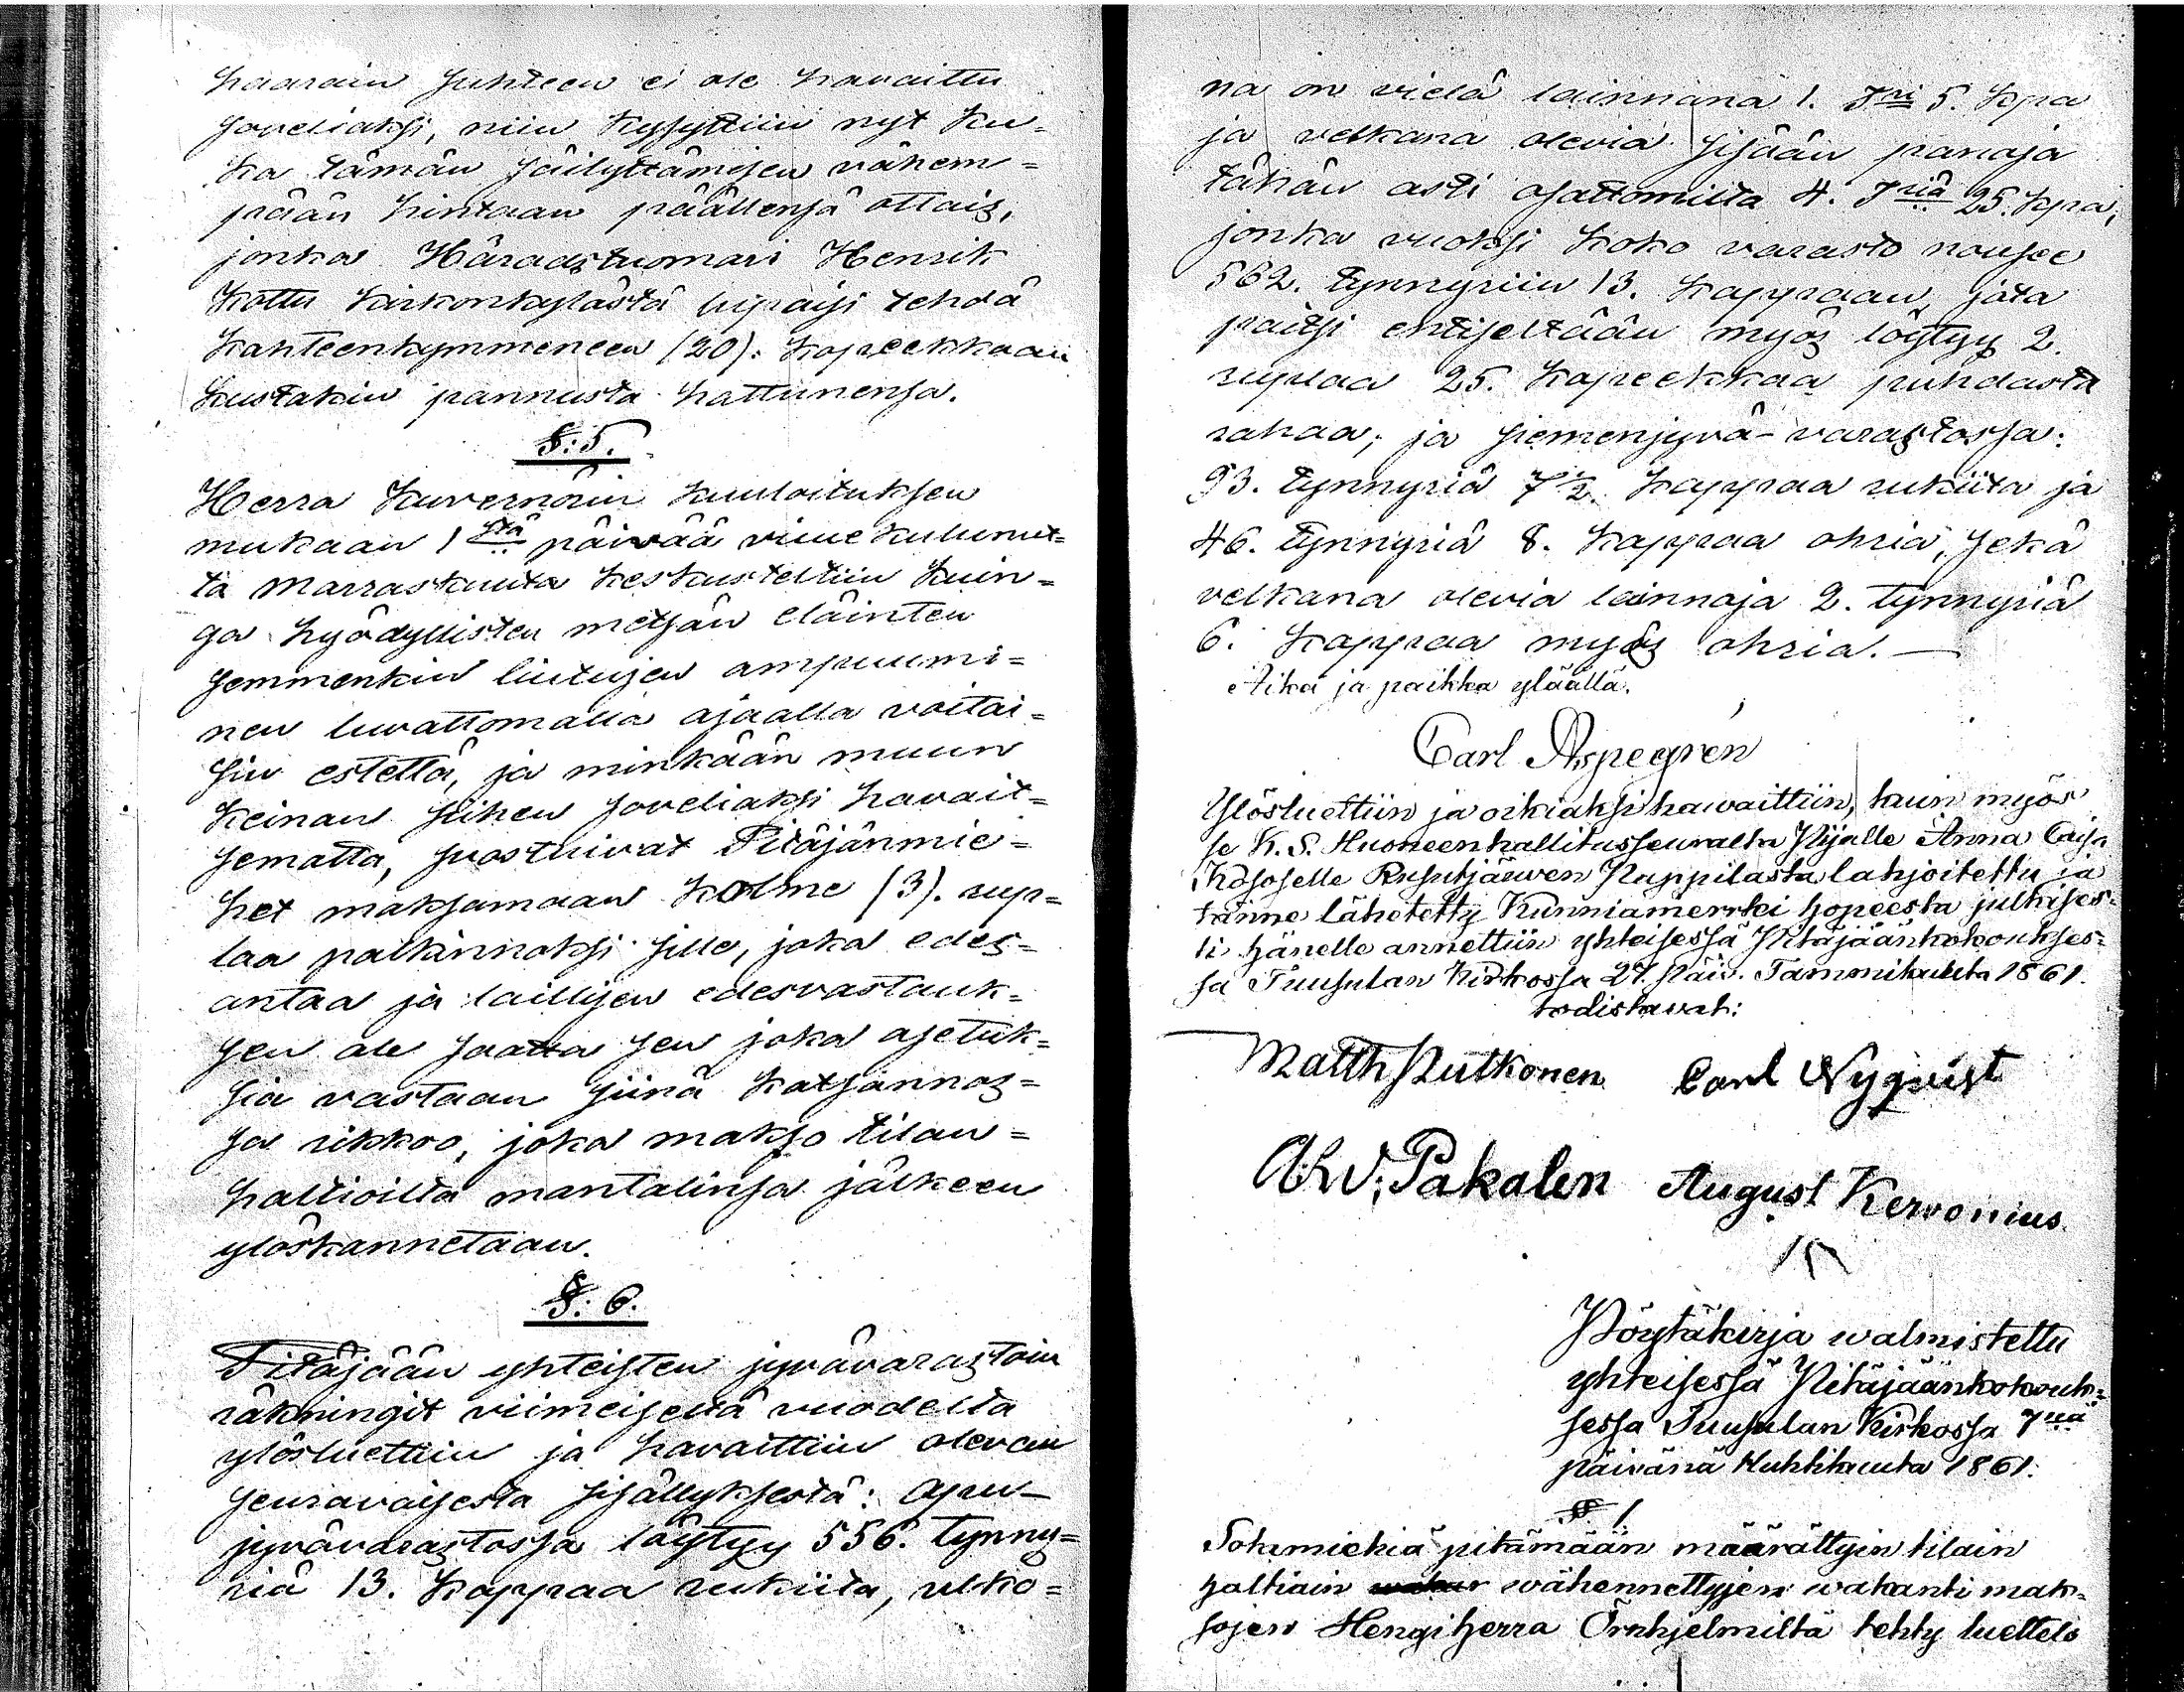 haarain suhteen ei ole havaittu
soveliaksi, niin kysyttiin nyt ku-
ka tämän säilyttämisen vähem-
pään hintaan päällensä ottais,
jonka Häraastuomari Henrik
Kottu Kirkonkylästä lupaisi tehdä
Kahteenkymmeneen (20). Kopeekkaan
kustakin pannusta hattunensa.
§: 5.
Herra Kuvernörin kuuloituksen
mukaan 1stä päivää viimekulunut-
ta Marraskuuta keskusteltiin kuin-
ga hyödyllisten metsän eläinten
semmenkin lintujen ampuumi-
nen luvattomalla ajaalla voitai-
siin estettä, ja minkään muun
keinan siihen soveliaksi havait-
sematta, suostuivat Pitäjänmie-
het maksamaan kolme (3). rup-
laa palkinnoksi sille, joka edes-
antaa ja laillisen edesvastauk-
sen ale saatta sen joka asetuk-
sia vastaan siinä katsannos-
sa rikkoo, joka makso tilan-
haltioilta mantalinsa jälkeen
ylöskannetaan.
§: 6.
Pitäjään yhteisten jyvävarastoin
räkningit viimeiseltä vuodelta
ylösluettiin ja havaittiin olevan
seuravaisesta sisällyksestä: Apu-
jyvävarastossa löytyy 556. tynny-
riä 13. kappaa rukiita, ulko-
na on vielä lainnana 1. Tri 5. kpa
ja velkana olevia sisään panoja
tähän asti osattomilta 4. Triä 25. kpa,
jonka vuoksi koko varasto nousee
562. tynnyriin 13. kappaan, jota
paitsi entiseltään myös löytyy 2.
ruplaa 25. kopeekkaa puhdasta
rahaa; ja siemenjyvä-varastossa:
93. tynnyriä 7½. kappaa rukiita ja
46. tynnyriä 8. kappaa ohria, sekä
velkana olevia lainnoja 2. tynnyriä
6. kappaa myös ohria. —
Aika ja paikka ylääilä.
Carl Aspegrén
Ylösluettiin ja oikiaksi hawaittiin, kuin myös
se K. S. Huoneenhallitusseuralta Piijalle Anna Caisa
Rusutjäwen Pappilasta lahjoitettu ja
tänne lähetetty Kunniamerkki hopeesta julkises-
ti hänelle annettiin yhteisessä Pitäjäänkokoukses-
sa Tuusulan Kirkossa 27. Päiv. Tammikuuta 1861.
todistavat:
Matth Putkonen Carl Nyqvist
Pakalen August Kervonius
Pöytäkirja walmistettu
yhteisessä Pitäjäänkokouk-
sessa Tuusulan Kirkossa 7nä
päivänä Huhtikuuta 1861.
§ 1
Sotamiehiä pitämään määrättyin tilain
haltiain wähennettyjen wakanti mak-
sojen Hengiherra Örnhjelmiltä tehty luettelo